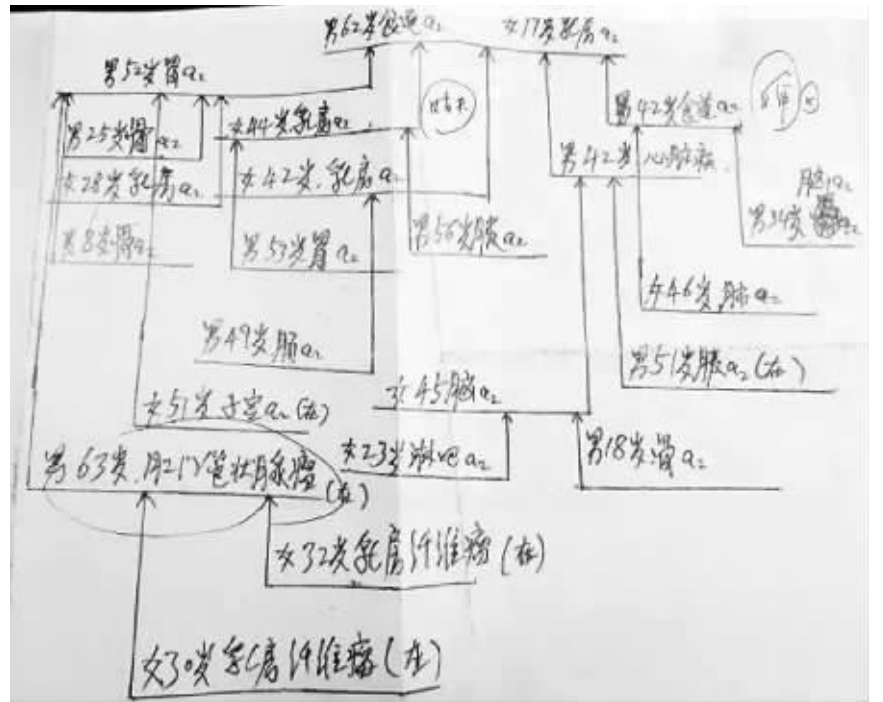 男62岁食道a₂ 女17岁乳房a₂
男52岁胃a₂
男25岁骨a₂ 女44岁乳房a₂ 男42岁食道a₂
女28岁乳房a₂ 女42岁.乳房a₂ 男42岁 心脏病.
脑a₂
男8岁骨a₂ 男53岁胃a₂ 男56岁胰a₂ 男34岁
女46岁肺a₂
男49岁肠a₂ 男51岁胰a₂(在)
女51岁子宫a₂(在) 女45脑a₂
男63岁. 状腺瘤(在) 女23岁淋巴a₂ 男18岁骨a₂
女32岁乳房纤维瘤(在)
女30岁乳房纤维瘤(在)